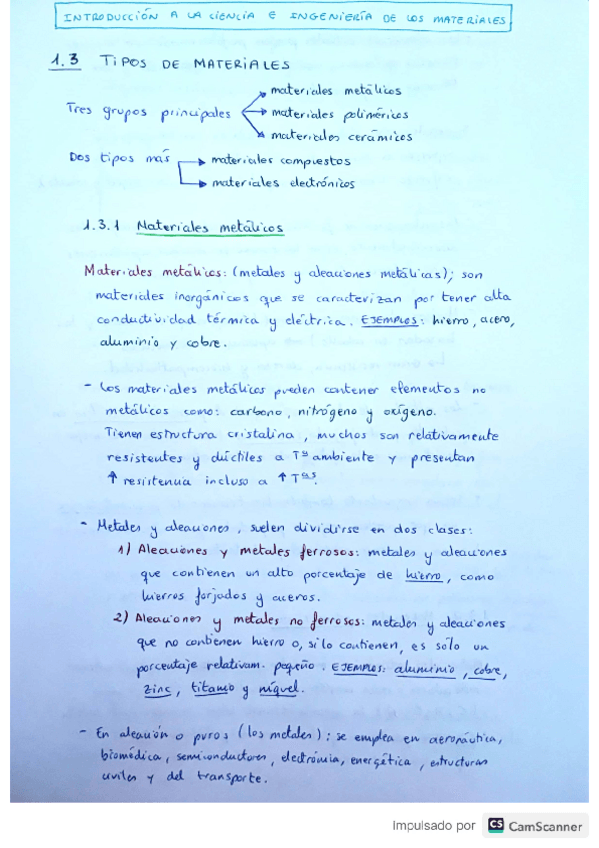 INTRODUCCIÓN A LA CIENCIA E INGENIERÍA DE LOS MATERIALES
1.3 TIPOS DE MATERIALES
Tres grupos principales
materiales metálicos
materiales poliméricos
materiales cerámicos
Dos tipos más
materiales compuestos
materiales electrónicos
1.3.1 Materiales metálicos
Materiales metálicos: (metales y aleaciones metálicas); son
materiales inorgánicos que se caracterizan por tener alta
conductividad térmica y eléctrica. EJEMPLOS: hierro, acero,
aluminio y cobre.
- Los materiales metálicos pueden contener elementos no
metálicos como: carbono, nitrógeno y oxígeno.
Tienen estructura cristalina, muchos son relativamente
resistentes y dúctiles a Tª ambiente y presentan
↑ resistencia incluso a ↑ Tªs.
- Metales y aleaciones, suelen dividirse en dos clases:
1) Aleaciones y metales ferrosos: metales y aleaciones
que contienen un alto porcentaje de hierro, como
hierros forjados y aceros.
2) Aleaciones y metales no ferrosos: metales y aleaciones
que no contienen hierro o, si lo contienen, es sólo un
porcentaje relativam. pequeño. EJEMPLOS: aluminio, cobre,
zinc, titanio y níquel.
- En aleación o puros (los metales): se emplea en aeronáutica,
biomédica, semiconductores, electrónica, energética, estructuras
civiles y del transporte.
Impulsado por CS CamScanner